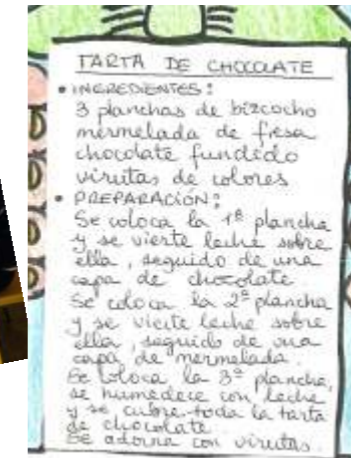 TARTA DE CHOCOLATE
• INGREDIENTES:
3 planchas de bizcocho
mermelada de fresa
chocolate fundido
virutas de colores
• PREPARACIÓN:
Se coloca la 1ª plancha
y se vierte leche sobre
ella, seguido de una
capa de chocolate
Se coloca la 2ª plancha
y se vierte leche sobre
ella, seguido de una
capa de mermelada.
Se coloca la 3ª plancha,
se humedece con leche
y se cubre toda la tarta
de chocolate.
Se adorna con virutas.